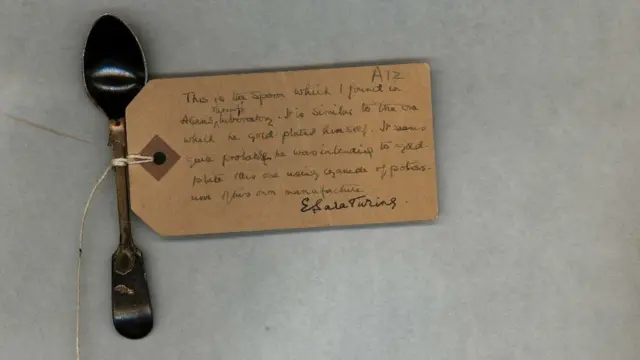 A12
This is the spoon which I found in
Alan's Turing's Laboratory. It is similar to the one
which he gold plated himself. It seems
quite probable he was intending to gold-
plate this one using cyanide of potass-
ium of his own manufacture.
E. Sara Turing.